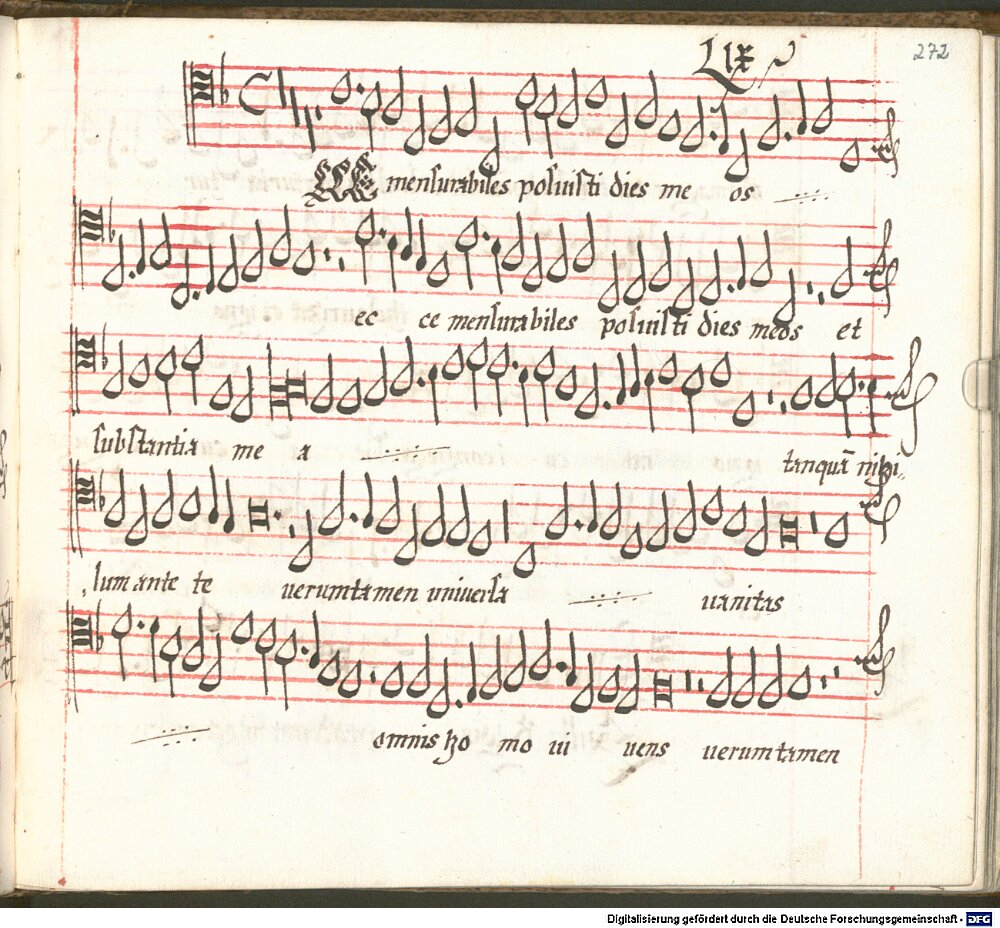 Lix
272
Ecce mensurabiles posuisti dies me os
ec ce mensurabiles posuisti dies meos et
substantia me a tanquã nihi-
lum ante te uerumtamen uniuersa uanitas
omnis ho mo ui uens uerumtamen
Digitalisierung gefördert durch die Deutsche Forschungsgemeinschaft - DFG